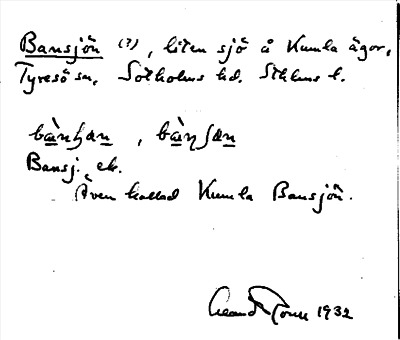 Bansjön (?), liten sjö å Kumla ägor,
Tyresö sn, Sotholms hd. Sthlms l.
Bansj. ek.
Även kallad Kumla Bansjön.
1932